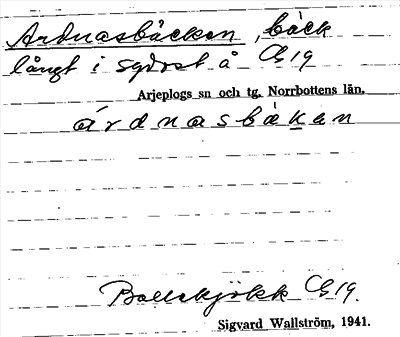 Ardnasbäcken, bäck
långt i sydost å C19
Arjeplogs sn och tg. Norrbottens län.
árdnasbäken
C19.
Sigvard Wallström, 1941.